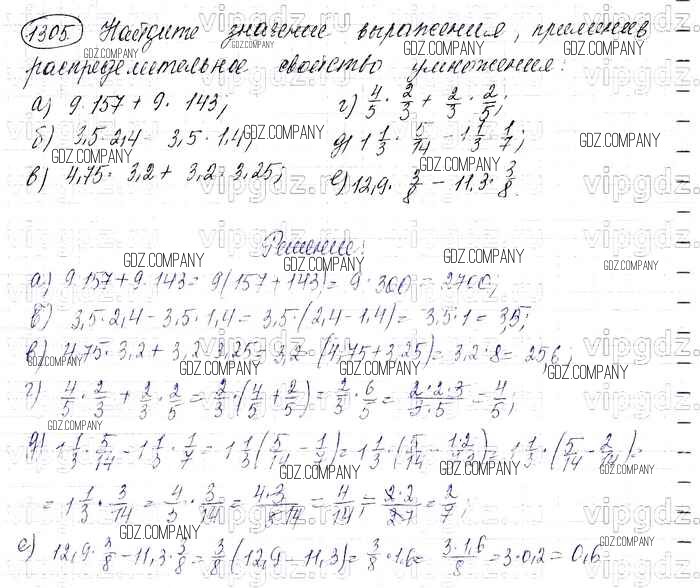 1305 Найдите значение выражения, применив
распределительное свойство умножения:
а) 9·157 + 9·143; г) 4/5 · 2/3 + 2/3 · 2/5;
б) 3,5·2,4 - 3,5·1,4; д) 1 1/3 · 5/14 - 1 1/3 · 1/7;
в) 4,75·3,2 + 3,2·3,25; е) 12,9 · 3/8 - 11,3 · 3/8
Решение:
а) 9·157 + 9·143 = 9(157 + 143) = 9·300 = 2700;
б) 3,5·2,4 - 3,5·1,4 = 3,5·(2,4 - 1,4) = 3,5·1 = 3,5;
в) 4,75·3,2 + 3,2·3,25 = 3,2·(4,75 + 3,25) = 3,2·8 = 25,6;
г) 4/5 · 2/3 + 2/3 · 2/5 = 2/3 · (4/5 + 2/5) = 2/3 · 6/5 = 2·2·3/3·5 = 4/5;
д) 1 1/3 · 5/14 - 1 1/3 · 1/7 = 1 1/3 (5/14 - 1/7) = 1 1/3 · (5/14 - 1·2/7·2) = 1 1/3 · (5/14 - 2/14) =
= 1 1/3 · 3/14 = 4/3 · 3/14 = 4·3/3·14 = 4/14 = 2·2/2·7 = 2/7;
е) 12,9 · 3/8 - 11,3 · 3/8 = 3/8 (12,9 - 11,3) = 3/8 · 1,6 = 3·1,6/8 = 3·0,2 = 0,6
GDZ.COMPANY
vipgdz.ru